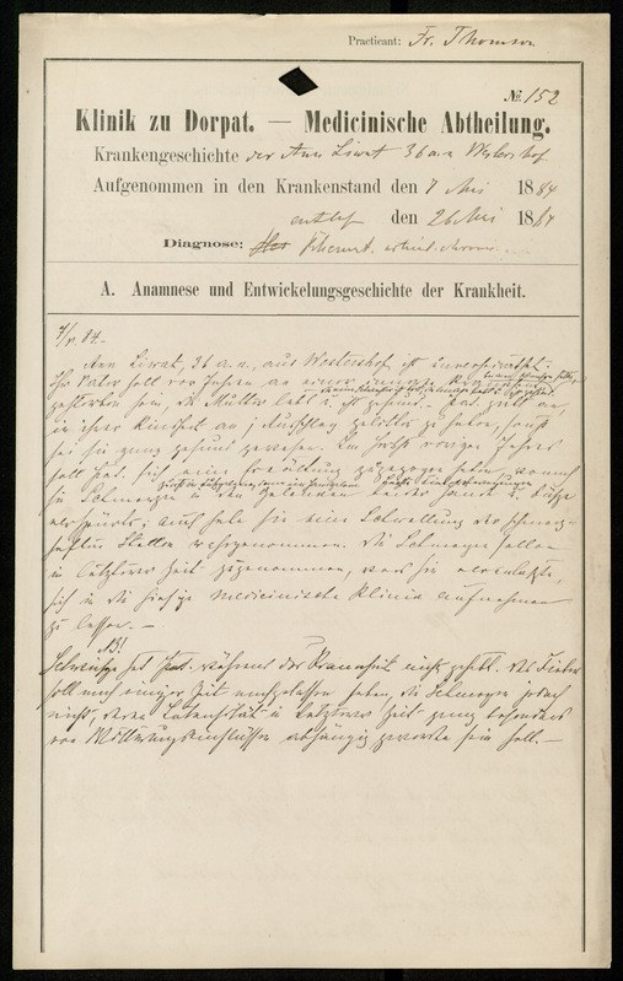 Practicant: Fr. Thomson
№ 152
Klinik zu Dorpat. — Medicinische Abtheilung.
Krankengeschichte der Ann Liwat 36 a. n.
Aufgenommen in den Krankenstand den 7 Mai 1884
den 26 Mai 1884
Diagnose: Rheumat.
A. Anamnese und Entwickelungsgeschichte der Krankheit.
7/V. 84.
Ann Liwat, 36 a. n., aus Wostershof, ist unverheirathet.
Ihr Vater soll vor Jahren an einer
gestorben sein, die Mutter lebt u. ist gesund. Pat. gibt an,
in ihrer Kindheit an Ausschlag gelitten zu haben, sonst
sei sie ganz gesund gewesen. Im Herbst vorigen Jahres
soll Pat. sich eine Erkältung zugezogen haben, wonach
sie Schmerzen in den Gelenken beider Hände u. Füsse
verspürte; auch habe sie eine Schwellung der schmerz-
haften Stellen wahrgenommen. Die Schmerzen sollen
in letzterer Zeit zugenommen, was sie veranlasste,
sich in die hiesige medicinische Klinik aufnehmen
zu lassen. —
NB!
Schweisse hat Pat. während der Krankheit nicht gehabt. Das Fieber
soll nach einiger Zeit nachgelassen haben, die Schmerzen jedoch
nicht, deren Intensität in letzterer Zeit ganz besonders
von Witterungseinflüssen abhängig geworden sein soll. —